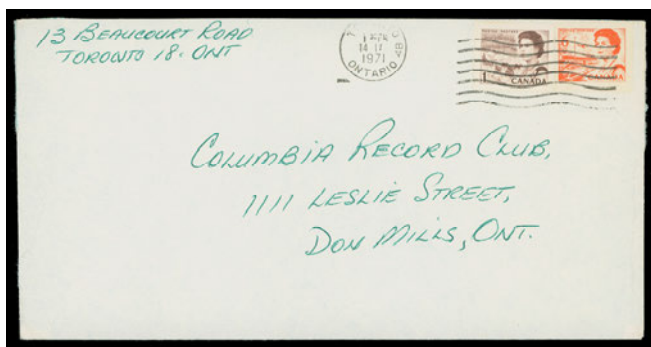 13 BEAUCOURT ROAD
TORONTO 18. ONT
14 II
1971
ONTARIO
1
CANADA
6
CANADA
COLUMBIA RECORD CLUB,
1111 LESLIE STREET,
DON MILLS, ONT.